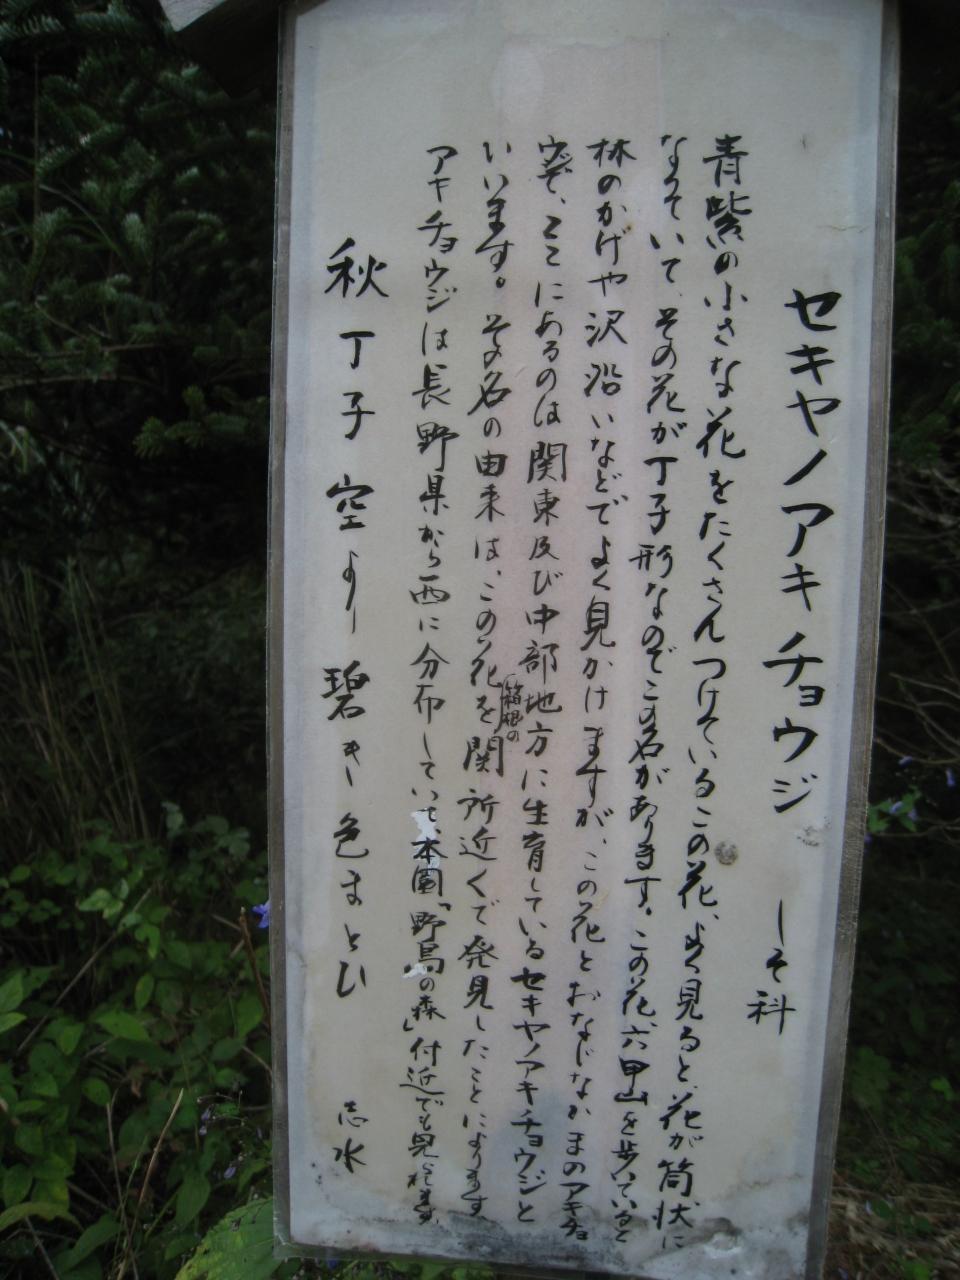 セキヤノアキチョウジ しそ科
青紫の小さな花をたくさんつけているこの花、よく見ると、花が筒状に
なっていて、その花が丁子形なのでこの名があります。この花、六甲山を歩いていると
林のかげや沢沿いなどでよく見かけますが、この花とおなじなかまのアキチョ
ウジで、ここにあるのは関東及び中部地方に生育しているセキヤノアキチョウジと
いいます。その名の由来は、この花を(箱根の関所近くで発見したことによります
アキチョウジは長野県から西に分布していて、本園「野鳥の森」付近でも見られます。
秋丁子空より碧き色まとひ 志水